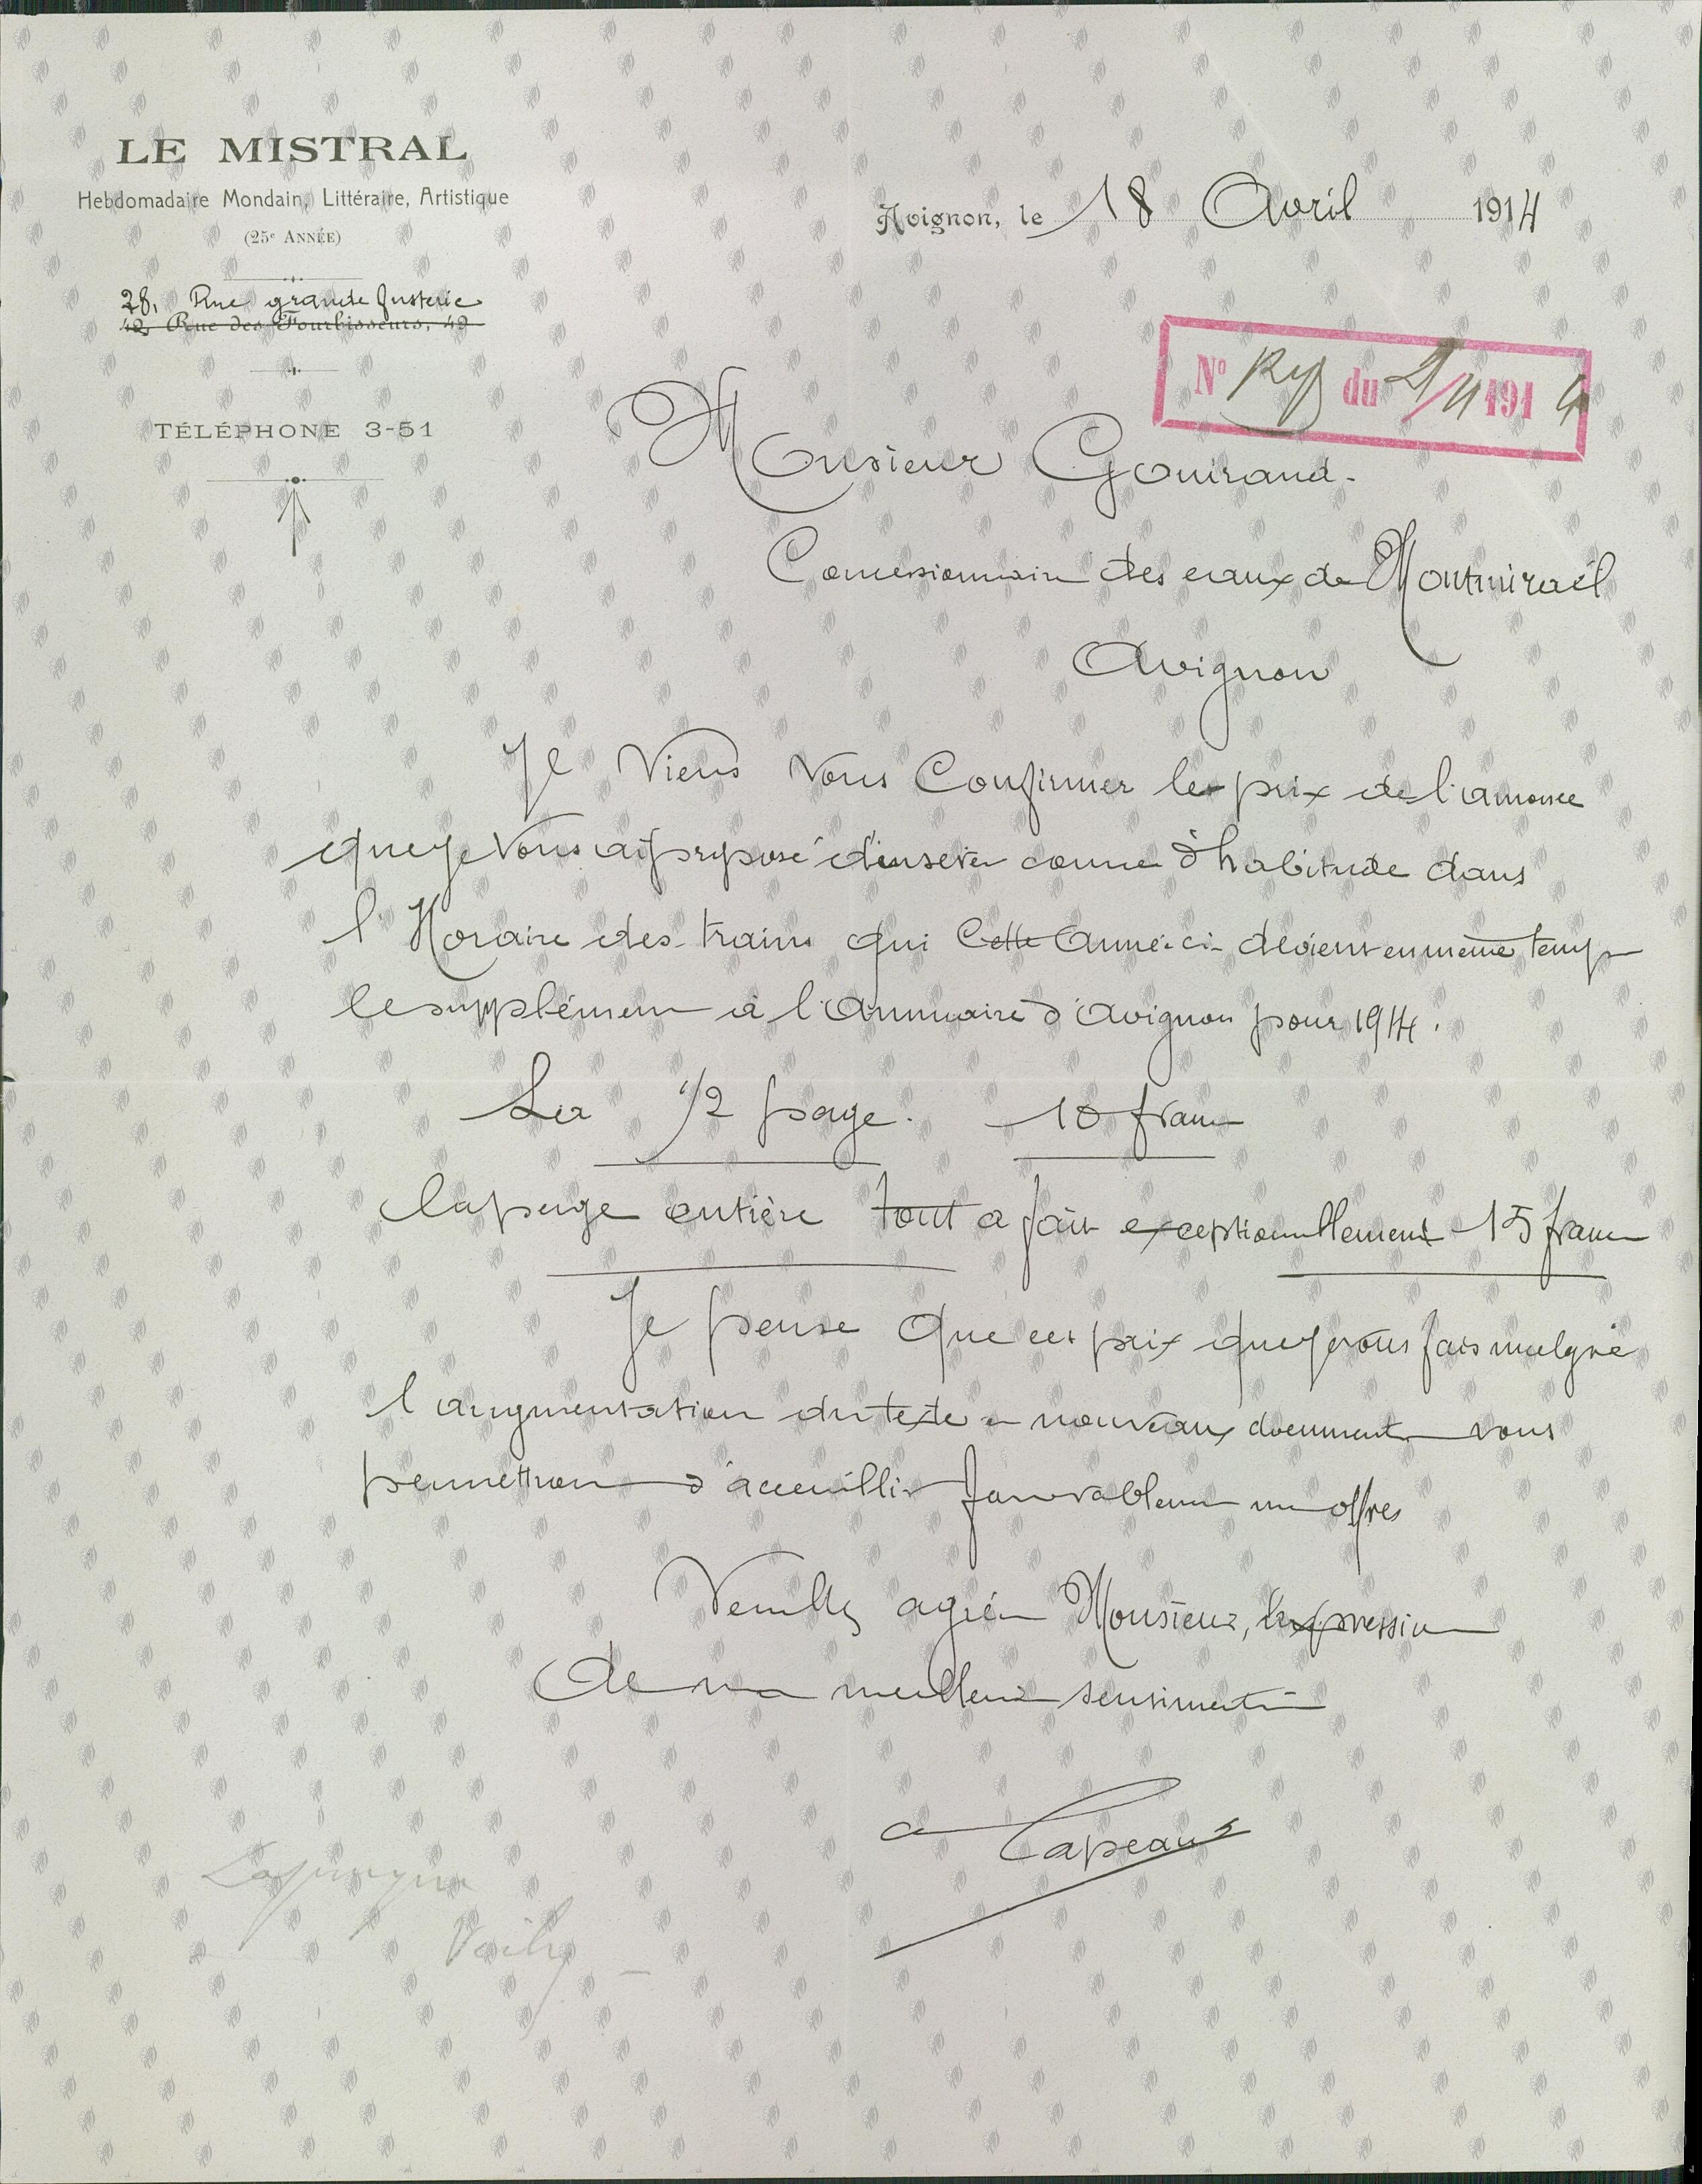 LE MISTRAL
Hebdomadaire Mondain, Littéraire, Artistique
(25e ANNÉE)
28, Rue grande fusterie
42, Rue des Fourbisseurs, 42
TÉLÉPHONE 3-51
Avignon, le 18 Avril 1914
No du 21/4 1914
Monsieur Gouirand.
Concessionnaire des eaux de Montmirail
Avignon
Je Viens Vous Confirmer le prix de l'annonce
que je Vous ai proposé d'insérer comme d'habitude dans
l'Horaire des trains qui Cette année-ci devient en même temps
le supplément à l'Annuaire d'Avignon pour 1914.
La 1/2 page. 10 francs
la page entière tout a fait exceptionnellement 15 francs
Je pense que ces prix que je vous fais malgré
l'augmentation du texte en nouveaux documents vous
permettront d'accueillir favorablement mes offres
Veuillez agréer Monsieur, l'expression
de mes meilleurs sentiments
Capeau